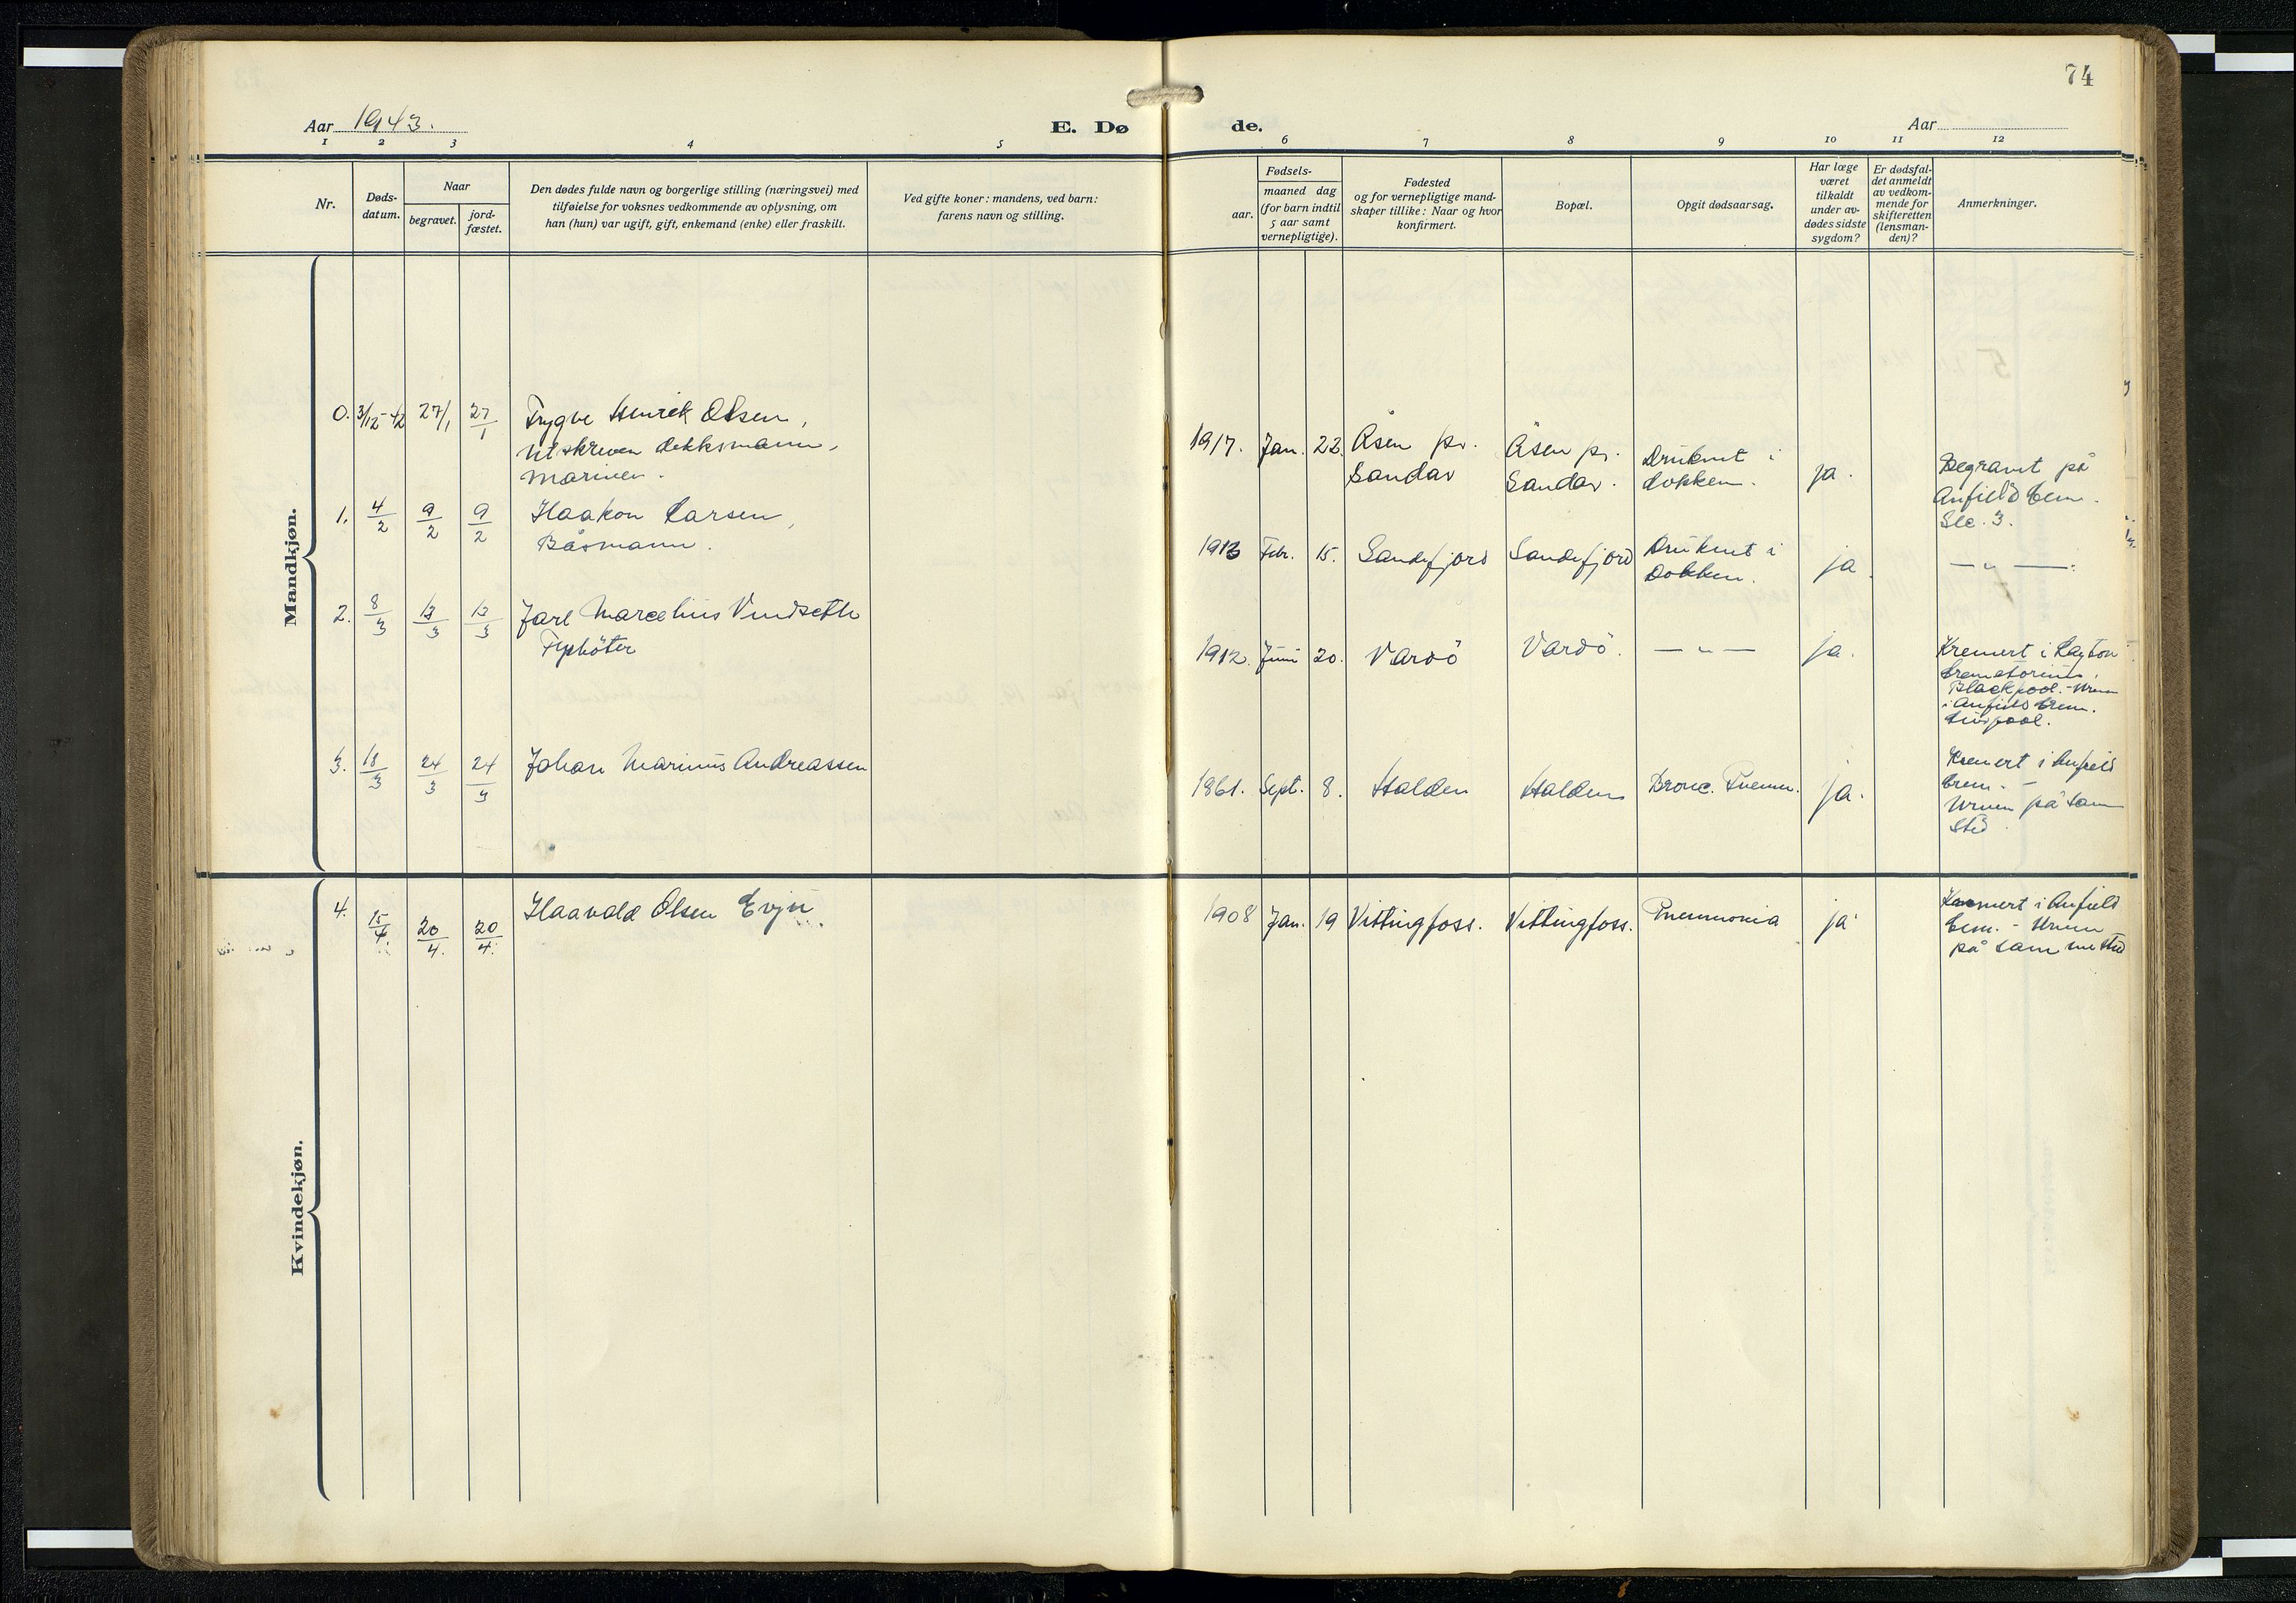 74
Aar 1943.
E. Dø de.
Aar
1 2 3 4 5 6 7 8 9 10 11 12
Nr.
Døds-
datum.
Naar
begravet.
jord-
fæstet.
Den dødes fulde navn og borgerlige stilling (næringsvei) med
tilføielse for voksnes vedkommende av oplysning, om
han (hun) var ugift, gift, enkemand (enke) eller fraskilt.
Ved gifte koner: mandens, ved barn:
farens navn og stilling.
Fødsels-
aar.
maaned dag
(for barn indtil
5 aar samt
vernepligtige).
Fødested
og for vernepligtige mand-
skaper tillike: Naar og hvor
konfirmert.
Bopæl.
Opgit dødsaarsag.
Har læge
været
tilkaldt
under av-
dødes sidste
sygdom?
Er dødsfal-
det anmeldt
av vedkom-
mende for
skifteretten
(lensman-
den)?
Anmerkninger.
Mandkjøn.
0. 3/12-42 27/1 27/1 Trygve Henrik Olsen,
utskreven dekksmann,
marinen.
1917. Jan. 22. Åsen pr.
Sandar
Åsen pr.
Sandar.
Druknet i
dokken.
ja.
Begravet på
Anfield Cem.
Sec. 3.
1. 4/2 9/2 9/2 Haakon Larsen,
Båsmann.
1913 Febr. 15. Sandefjord Sandefjord Druknet i
Dokken.
ja. — " —
2. 8/3 13/3 13/3 Jarl Marcelius Vindseth
Fyrbøter
1912. Juni 20. Vardö Vardö. — " — ja.
Kremert i Layton
Crematorium,
Blackpool. - Urnen
i Anfield Crem.
Liverpool.
3. 18/3 24/3 24/3 Johan Marinus Andreassen
1861. Sept. 8. Halden Halden Bronc. Pneum. ja.
Kremert i Anfield
Crem. -
Urnen på sam
sted
Kvindekjøn.
4. 15/4. 20/4. 20/4. Haavald Olsen Evju.
1908 Jan. 19 Vittingfoss. Vittingfoss. Pneumonia ja
Kremert i Anfield
Crem. - Urnen
på samme sted